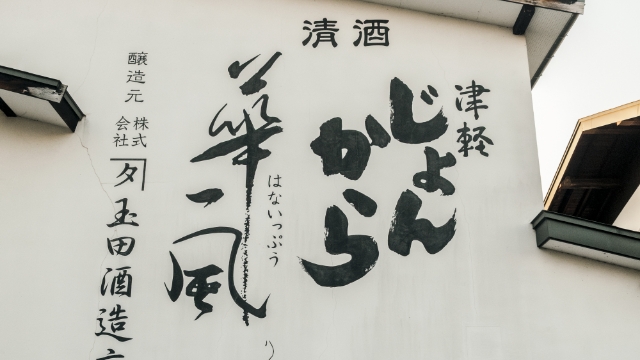 清酒
津軽
じょん
から
華一風
はないっぷう
醸造元
株式
会社
玉田酒造